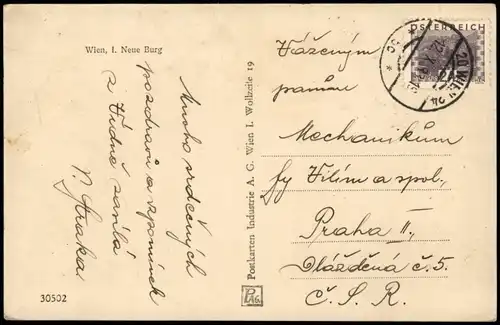 Wien, I. Neue Burg
Mnoho srdečných
pozdravů a vzpomínek
z Vídně zasílá
V. Straka
30502
Postkarten Industrie A. G. Wien I. Wollzeile 19
PAG.
ÖSTERREICH
20 WIEN
Váženým
pánům
Mechanikům
fy Vilím a spol.,
Praha II.,
Dlážděná č. 5.
Č. S. R.